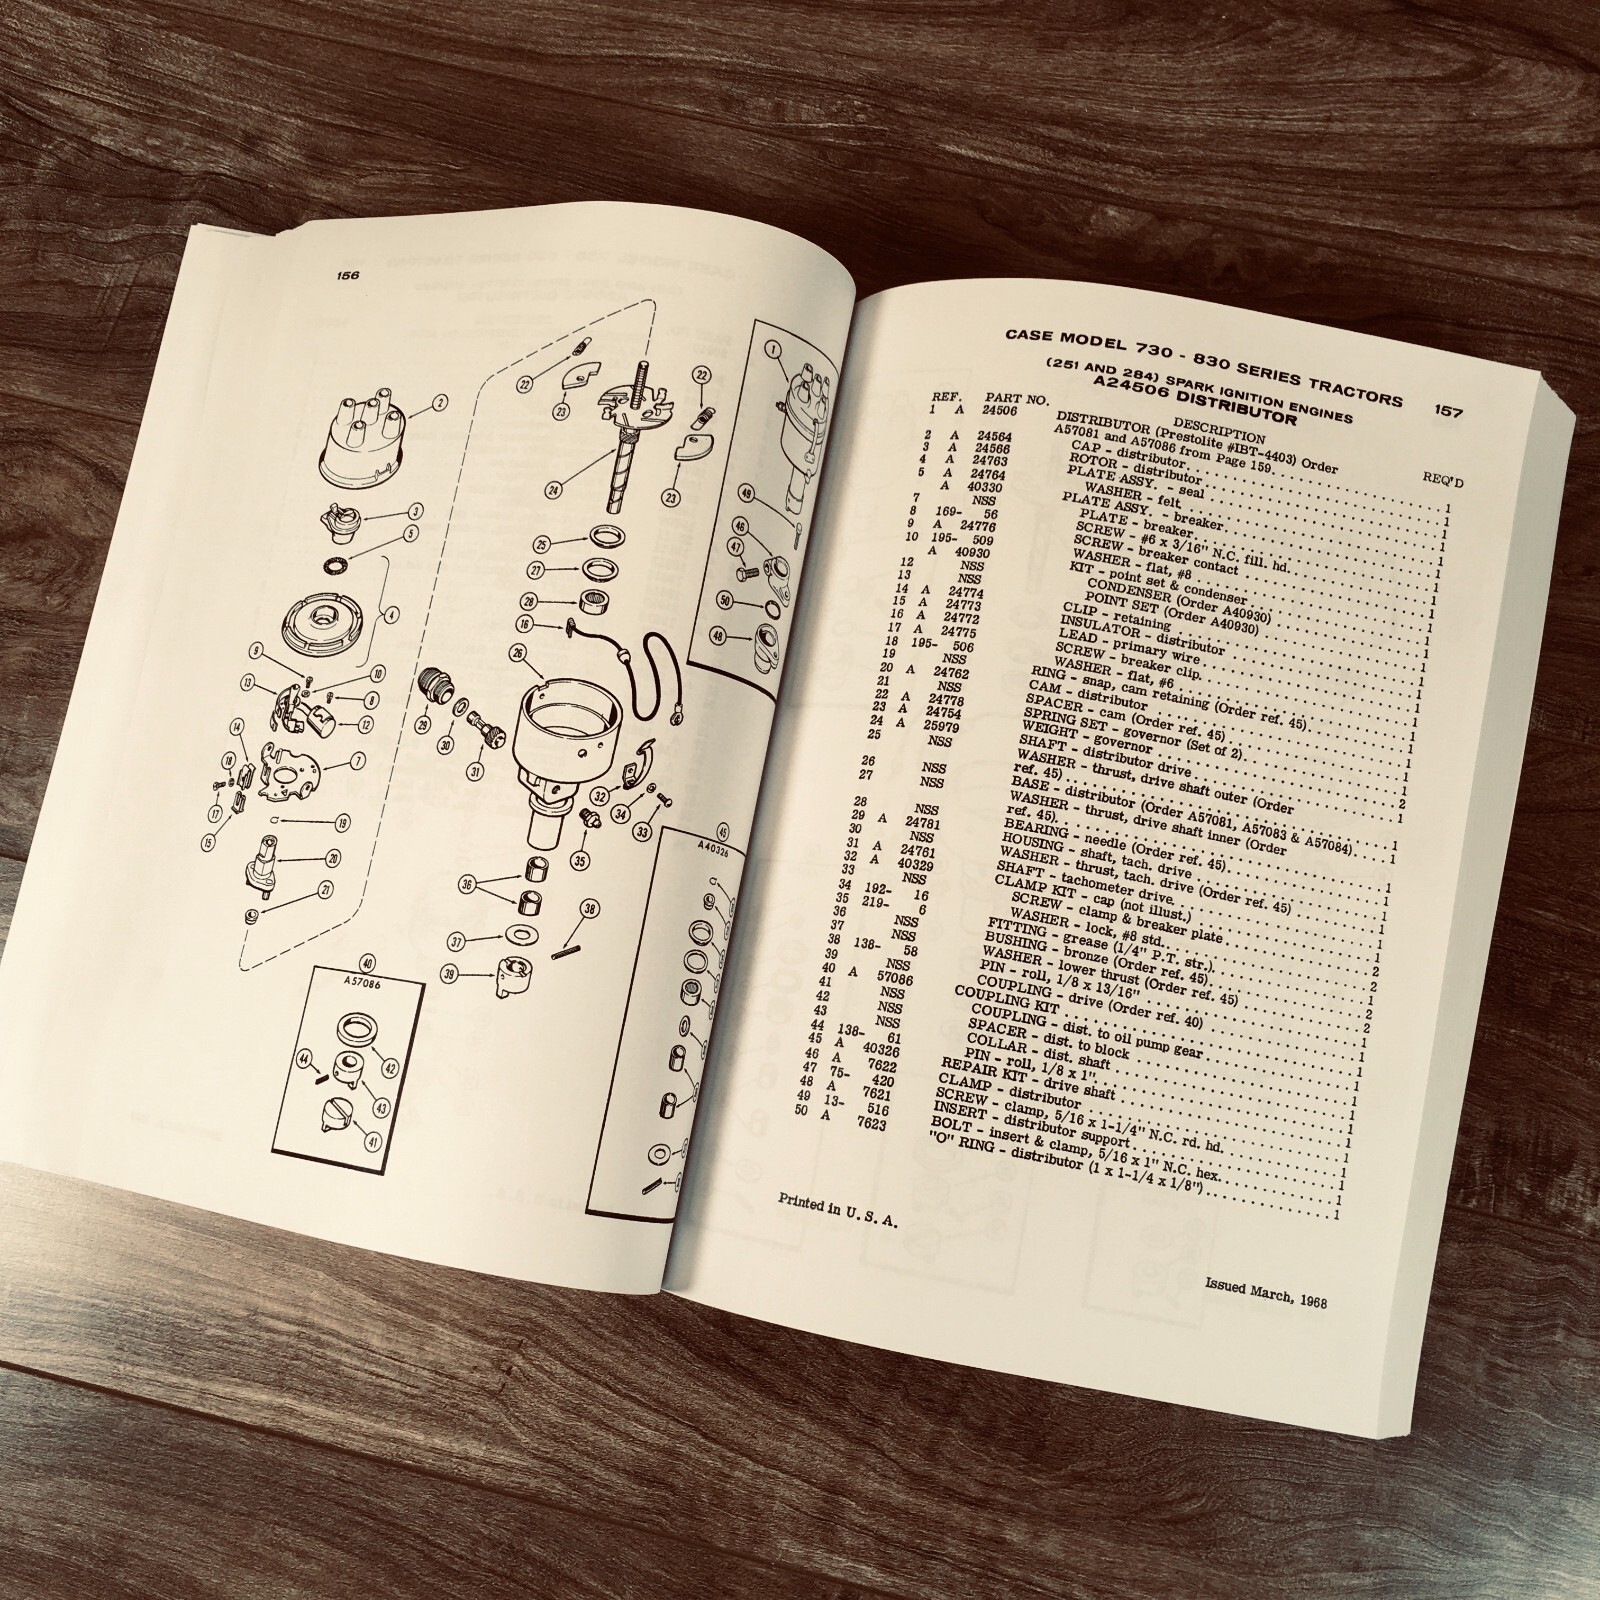 156
2
3
5
4
9
10
13
8
12
14
7
18
17
15
19
20
21
22
23
22
23
24
25
27
28
16
26
29
30
31
32
34
33
35
36
37
38
39
1
49
46
47
50
48
40
A57086
42
44
43
41
45
A40326
CASE MODEL 730 - 830 SERIES TRACTORS 157
(251 AND 284) SPARK IGNITION ENGINES
A24506 DISTRIBUTOR
REF. PART NO. DESCRIPTION REQ'D
1 A 24506 DISTRIBUTOR (Prestolite #IBT-4403) Order
A57081 and A57086 from Page 159. 1
2 A 24564 CAP - distributor 1
3 A 24566 ROTOR - distributor 1
4 A 24763 PLATE ASSY. - seal 1
5 A 24764 WASHER - felt 1
A 40330 PLATE ASSY. - breaker 1
7 NSS PLATE - breaker 1
8 169- 56 SCREW - #6 x 3/16" N.C. fill. hd. 1
9 A 24776 SCREW - breaker contact 1
10 195- 509 WASHER - flat, #8 1
A 40930 KIT - point set & condenser 1
12 NSS CONDENSER (Order A40930) 1
13 NSS POINT SET (Order A40930) 1
14 A 24774 CLIP - retaining 1
15 A 24773 INSULATOR - distributor 1
16 A 24772 LEAD - primary wire 1
17 A 24775 SCREW - breaker clip 1
18 195- 506 WASHER - flat, #6 1
19 NSS RING - snap, cam retaining (Order ref. 45) 1
20 A 24762 CAM - distributor 1
21 NSS SPACER - cam (Order ref. 45) 1
22 A 24778 SPRING SET - governor (Set of 2) 1
23 A 24754 WEIGHT - governor 2
24 A 25979 SHAFT - distributor drive 1
25 NSS WASHER - thrust, drive shaft outer (Order
ref. 45) 1
26 NSS BASE - distributor (Order A57081, A57083 & A57084) 1
27 NSS WASHER - thrust, drive shaft inner (Order
ref. 45) 1
28 NSS BEARING - needle (Order ref. 45) 1
29 A 24781 HOUSING - shaft, tach. drive 1
30 NSS WASHER - thrust, tach. drive (Order ref. 45) 1
31 A 24761 SHAFT - tachometer drive 1
32 A 40329 CLAMP KIT - cap (not illust.) 1
33 NSS SCREW - clamp & breaker plate 2
34 192- 16 WASHER - lock, #8 std. 2
35 219- 6 FITTING - grease (1/4" P.T. str.) 1
36 NSS BUSHING - bronze (Order ref. 45) 2
37 NSS WASHER - lower thrust (Order ref. 45) 2
38 138- 58 PIN - roll, 1/8 x 13/16" 1
39 NSS COUPLING - drive (Order ref. 40) 1
40 A 57086 COUPLING KIT 1
41 NSS COUPLING - dist. to oil pump gear 1
42 NSS SPACER - dist. to block 1
43 NSS COLLAR - dist. shaft 1
44 138- 61 PIN - roll, 1/8 x 1" 1
45 A 40326 REPAIR KIT - drive shaft 1
46 A 7622 CLAMP - distributor 1
47 75- 420 SCREW - clamp, 5/16 x 1-1/4" N.C. rd. hd. 1
48 A 7621 INSERT - distributor support 1
49 13- 516 BOLT - insert & clamp, 5/16 x 1" N.C. hex. 1
50 A 7623 "O" RING - distributor (1 x 1-1/4 x 1/8") 1
Printed in U. S. A.
Issued March, 1968